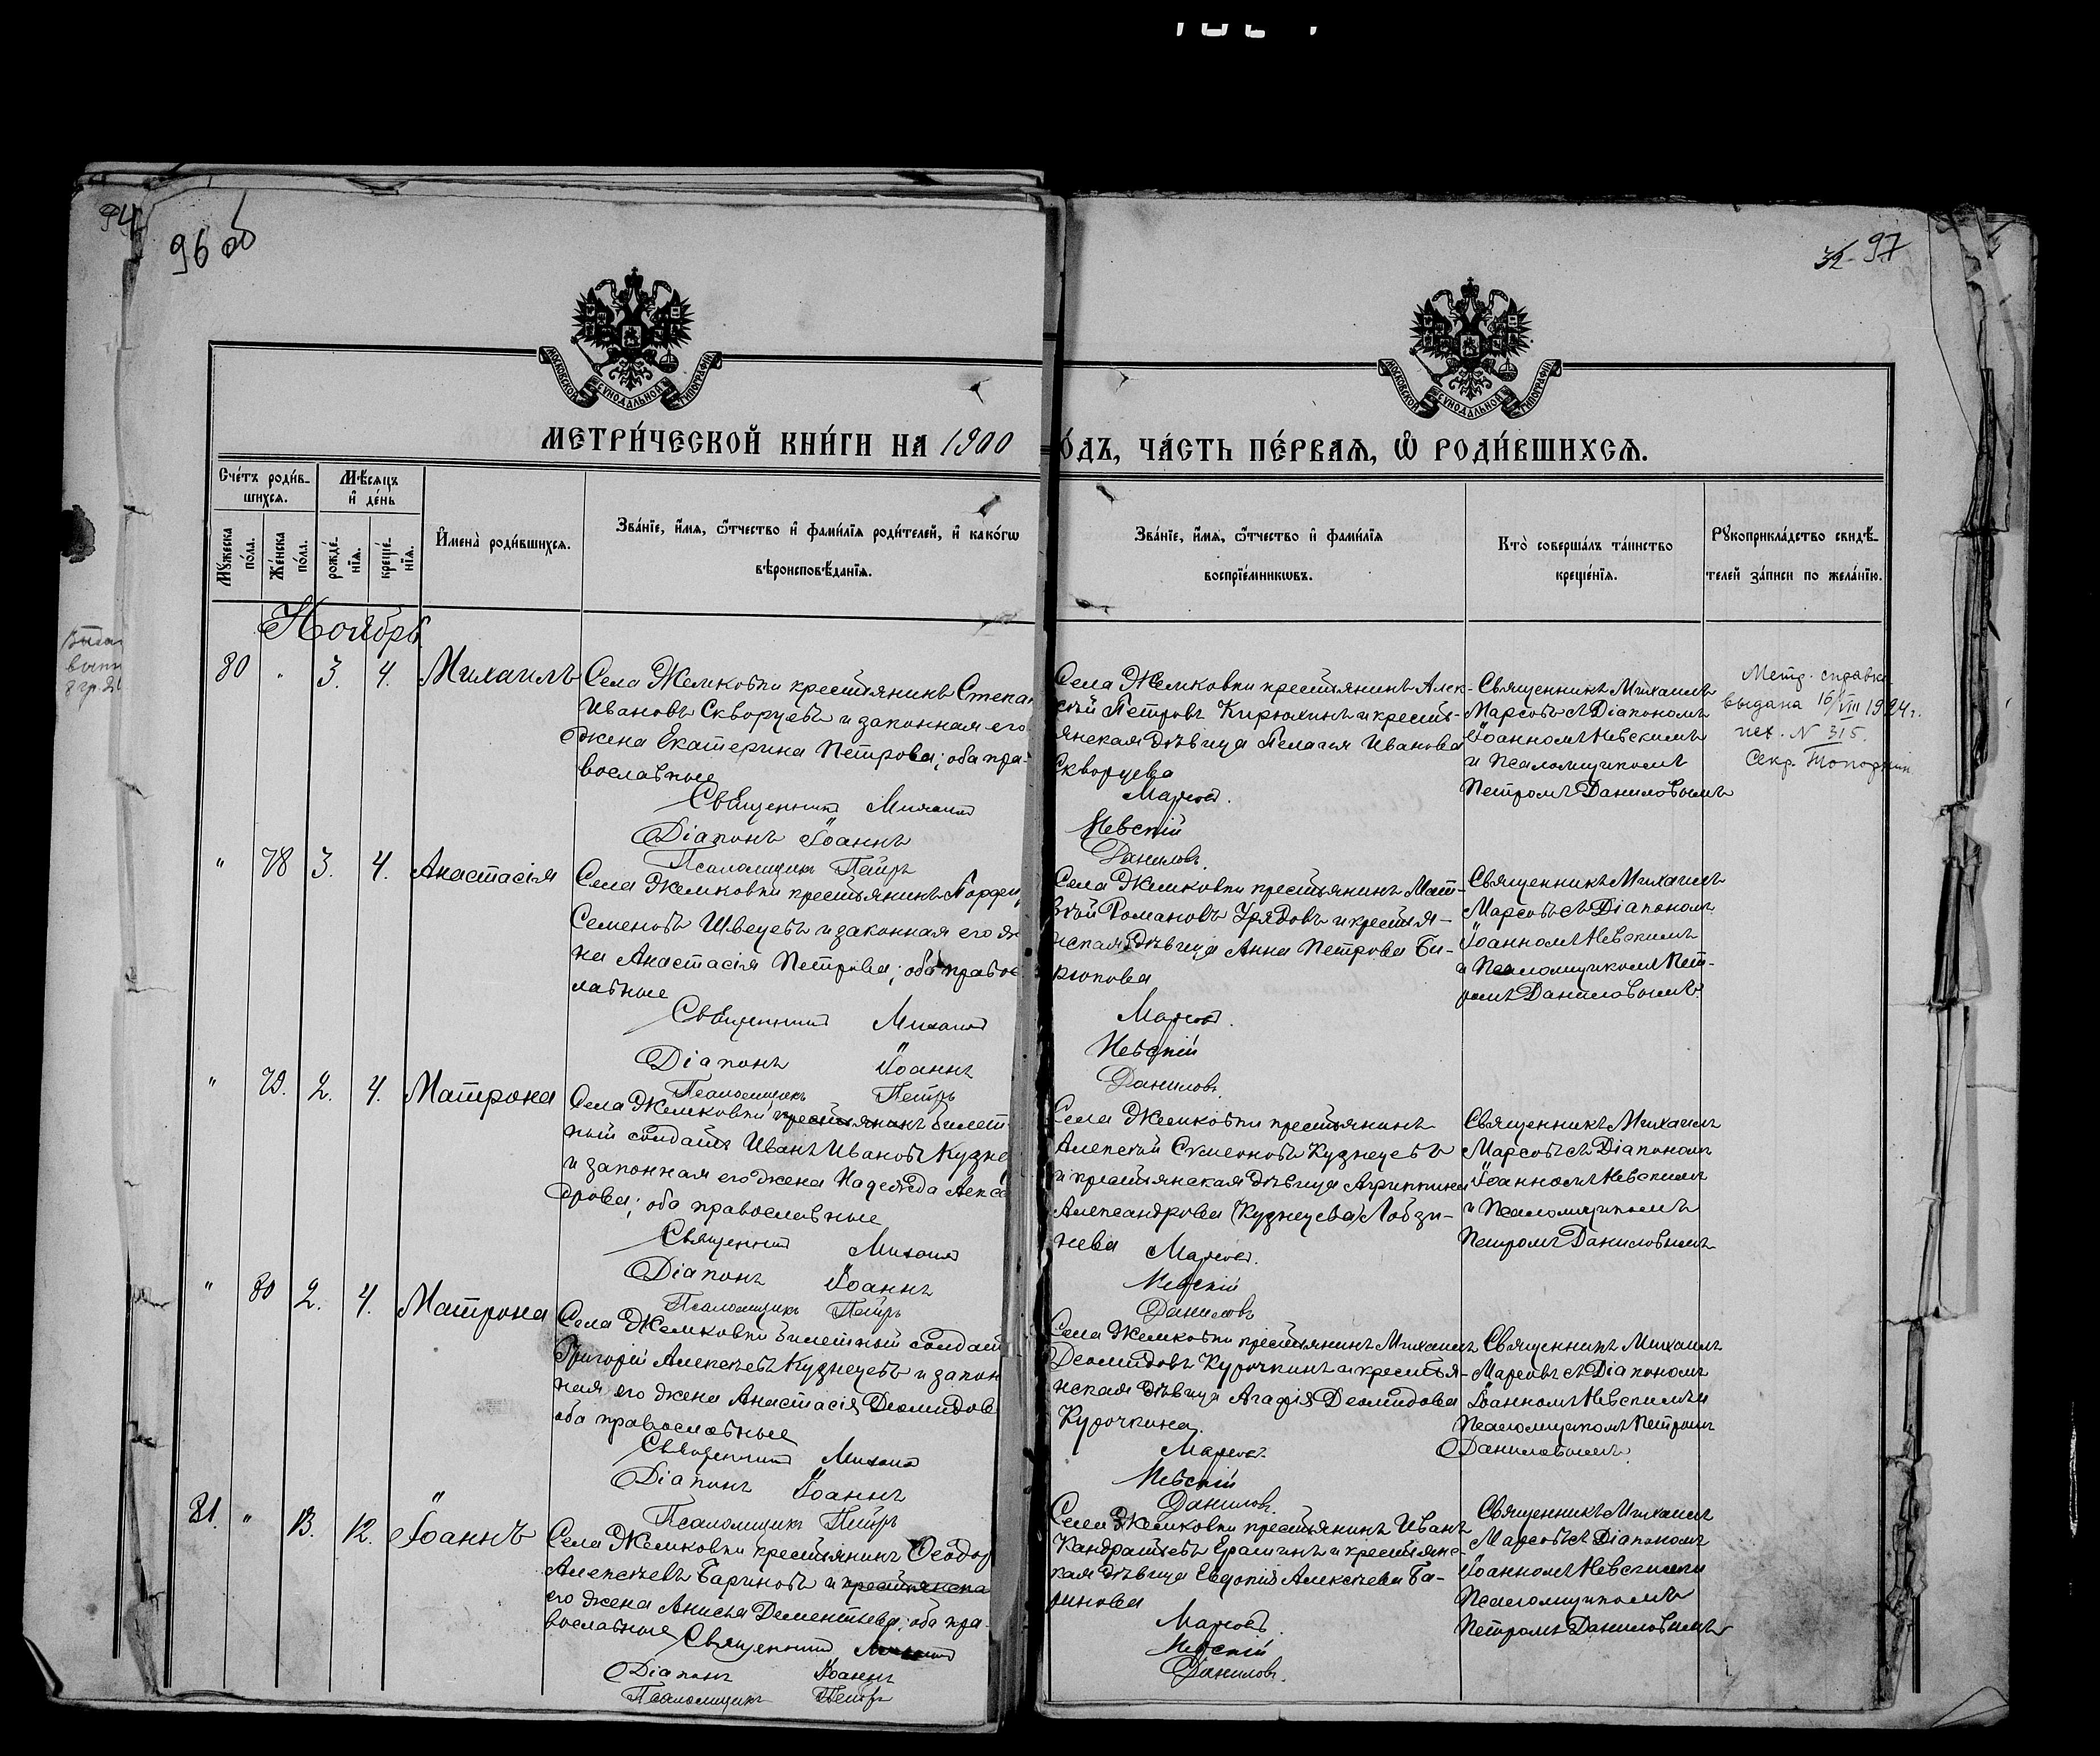 94
96 об
32 97
МОСКОВСКОЙ СѴНОДАЛЬНОЙ ТИПОГРАФІИ
МОСКОВСКОЙ СѴНОДАЛЬНОЙ ТИПОГРАФІИ
МЕТРИ́ЧЕСКОЙ КНИ́ГИ НА 1900
О́ДЪ, ЧА́СТЬ ПЕ́РВАѦ, Ѡ҆ РОДИ́ВШИХСѦ.
Сче́тъ роди́в-
шихсѧ.
Мѣ́сѧцъ
и҆ де́нь
Мꙋ́жеска
по́ла.
Же́нска
по́ла.
рожде́-
нїѧ.
креще́-
нїѧ.
И҆мена̀ роди́вшихсѧ.
Зва́нїе, и҆́мѧ, ѻ҆́тчество и҆ фами́лїѧ роди́телей, и҆ како́гѡ
вѣроисповѣ́данїѧ.
Зва́нїе, и҆́мѧ, ѻ҆́тчество и҆ фами́лїѧ
воспрїе́мникѡвъ.
Кто̀ соверша́лъ та́инство
креще́нїѧ.
Рꙋкоприкла́дство свидѣ́-
телей за́писи по жела́нїю.
Ноябрь
80 " 3. 4. Михаилъ
Села Жемковки крестьянинъ Степан
Ивановъ Скворцевъ и законная его
жена Екатерина Петрова; оба пра-
вославные
Священникъ Михаилъ
Діаконъ Іоаннъ
Псаломщикъ Петръ
Села Жемковки крестьянинъ Алек-
сѣй Петровъ Кирюхинъ и кресть-
янская дѣвица Пелагея Иванова
Скворцева
Марсовъ.
Невскій
Даниловъ.
Священникъ Михаилъ
Марсовъ съ Діакономъ
Іоанномъ Невскимъ
и Псаломщикомъ
Петромъ Даниловымъ
Метр. справка
выдана 16/VIII 1924 г.
исх. N 315.
Секр.
" 78 3. 4. Анастасія
Села Жемковки крестьянинъ Порфи
Семеновъ Швецевъ и законная его же
на Анастасія Петрова; оба правос
лавные
Священникъ Михаилъ
Діаконъ Іоаннъ
Псаломщикъ Петръ
Села Жемковки крестьянинъ Мат-
вѣй Романовъ Урядовъ и крестья-
нская дѣвица Анна Петрова Би-
рюкова
Марсовъ.
Невскій
Даниловъ.
Священникъ Михаилъ
Марсовъ съ Діакономъ
Іоанномъ Невскимъ
и Псаломщикомъ Пет-
ромъ Даниловымъ.
" 79. 2. 4. Матрона
Села Жемковки крестьянинъ билет-
ный солдатъ Иванъ Ивановъ Кузне
и законная его жена Надежда Алекса
дрова; оба православные
Священникъ Михаилъ
Діаконъ Іоаннъ
Псаломщикъ Петръ
Села Жемковки крестьянинъ
Алексѣй Семеновъ Кузнецевъ
и крестьянская дѣвица Агриппина
Александрова (Кузнецева) Лобзи-
нева
Марсовъ.
Невскій
Даниловъ
Священникъ Михаилъ
Марсовъ съ Діакономъ
Іоанномъ Невскимъ
и Псаломщикомъ
Петромъ Даниловымъ
" 80 2. 4. Матрона
Села Жемковки билетный солдат
Григорій Алексѣевъ Кузнецевъ и закон
ная его жена Анастасія Деомидов
оба православные
Священникъ Михаилъ
Діаконъ Іоаннъ
Псаломщикъ Петръ
Села Жемковки крестьянинъ Михаилъ
Деомидовъ Курочкинъ и крестья-
нская дѣвица Агафія Деомидова
Курочкина.
Марсовъ.
Невскій
Даниловъ.
Священникъ Михаилъ
Марсовъ съ Діакономъ
Іоанномъ Невскимъ и
Псаломщикомъ Петромъ
Даниловымъ.
81. " 13. 12. Іоаннъ
Села Жемковки крестьянинъ Ѳеодор
Алексѣевъ Бариновъ и крестьянска
его жена Анисья Дементьева; оба пра-
вославные
Священникъ Михаилъ
Діаконъ Іоаннъ
Псаломщикъ Петръ
Села Жемковки крестьянинъ Иванъ
Кандратьевъ Ерапинъ и крестьянс-
кая дѣвица Евдокія Алексѣева Ба-
ринова
Марсовъ.
Невскій
Даниловъ.
Священникъ Михаилъ
Марсовъ съ Діакономъ
Іоанномъ Невскимъ и
Псаломщикомъ
Петромъ Даниловымъ